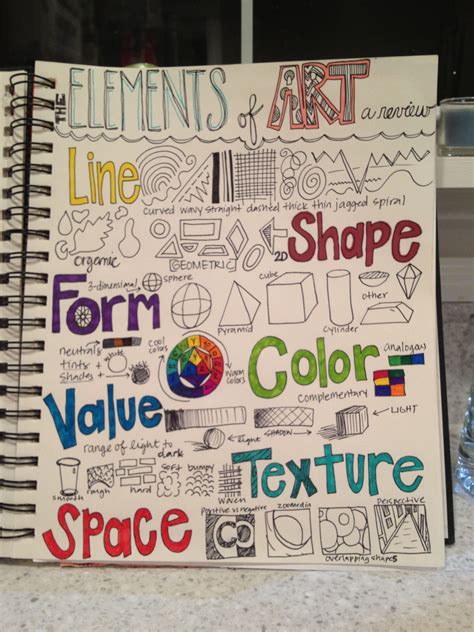 THE ELEMENTS of ART a review
Line
curved wavy straight dashed thick thin jagged spiral
organic
GEOMETRIC
2D Shape
3-dimensional
sphere
cube
other
Form
pyramid
cylinder
neutrals
tints +
shades
white
cool colors
warm colors
Color
analogous
complementary
Value
range of light to dark
light
SHADOW
LIGHT
smooth
rough
hard
soft
bumpy
woven
Texture
Space
Positive vs negative
zoomed in
Perspective
overlapping shapes